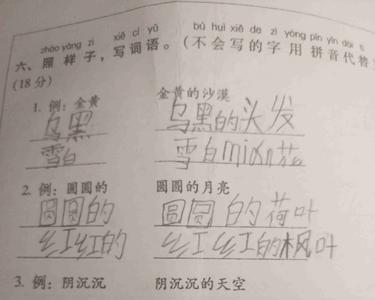 zhào yàng zi xiě cí yǔ bú huì xiě de zì yòng pīn yīn dài
六、照样子，写词语。（不会写的字用拼音代替
(18分)
1. 例：金黄 金黄的沙漠
乌黑 乌黑的头发
雪白 雪白mián花
2. 例：圆圆的 圆圆的月亮
圆圆的 圆圆的荷叶
红红的 红红的枫叶
3. 例：阴沉沉 阴沉沉的天空